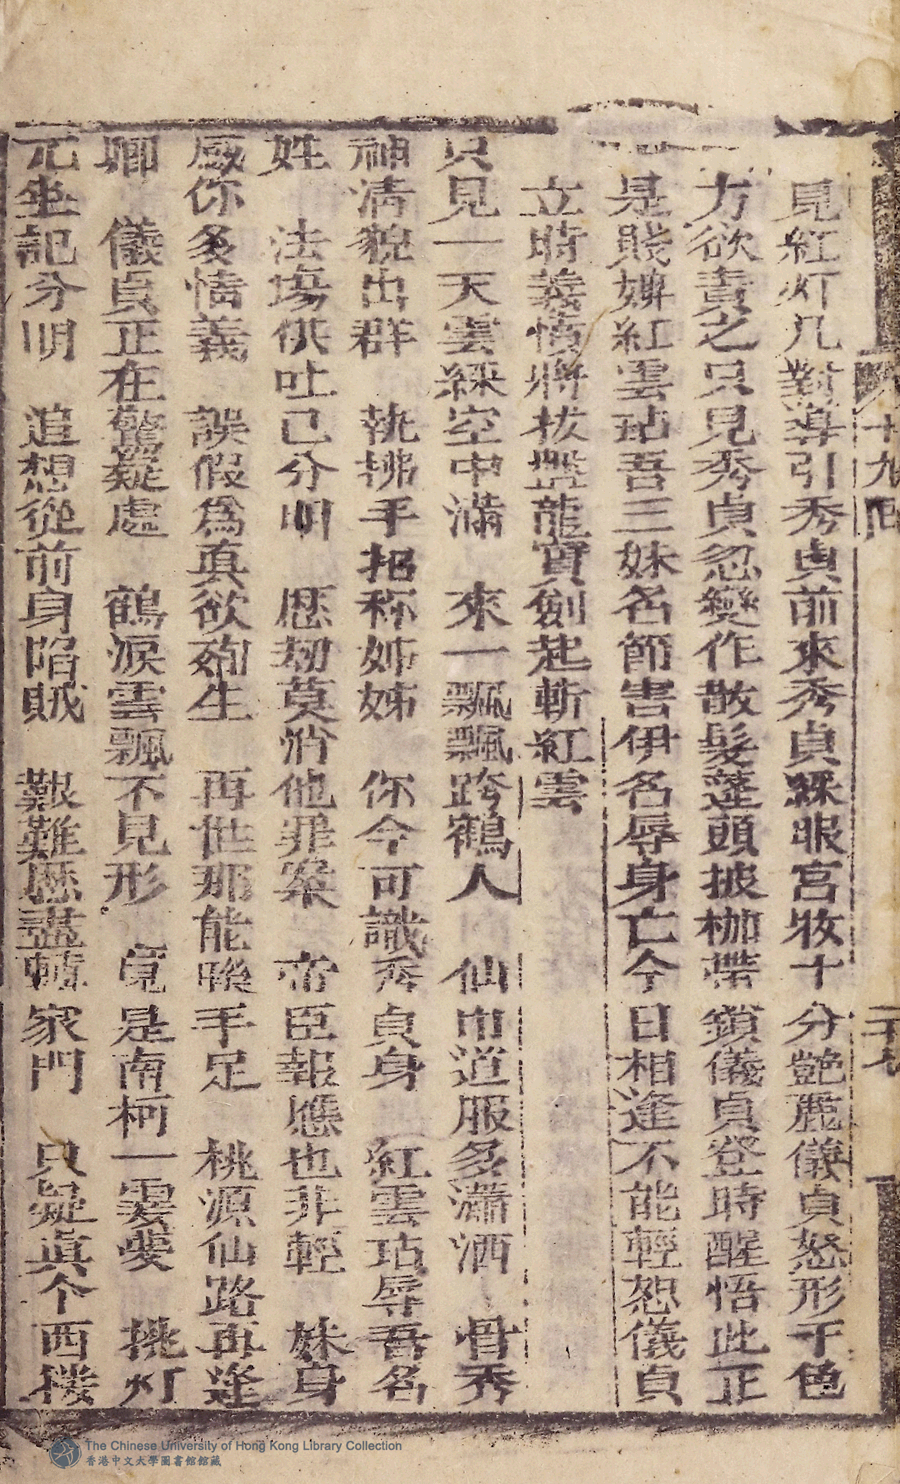 十九回
二十七
見紅灯几對導引秀貞前來秀貞綵服宮妝十分艶麗儀貞怒形于色
方欲責之只見秀貞忽變作散髮蓬頭披枷帶鎖儀貞登時醒悟此正
是賤婢紅雲玷吾三妹名節害伊名辱身亡今日相逢不能輕恕儀貞
立時義憤將拔盤龍寶劍起斬紅雲
只見一天雲綵空中滿　來一飄飄跨鶴人　仙巾道服多瀟洒　骨秀
神清貌出群　执拂手招称姊姊　你今可識秀貞身　紅雲玷辱吾名
姓　法塲供吐已分明　歷劫莫消他罪案　帝臣報應也非輕　妹身
感你多情義　誤假爲真欲殉生　再世那能联手足　桃源仙路再逢
卿　儀貞正在驚疑處　鶴淚雲飄不見形　竟是南柯一霎夢　挑灯
元坐記分明　追想從前身陷賊　艱難歷盡轉家門　只疑真个西楼
The Chinese University of Hong Kong Library Collection
香港中文大學圖書館館藏